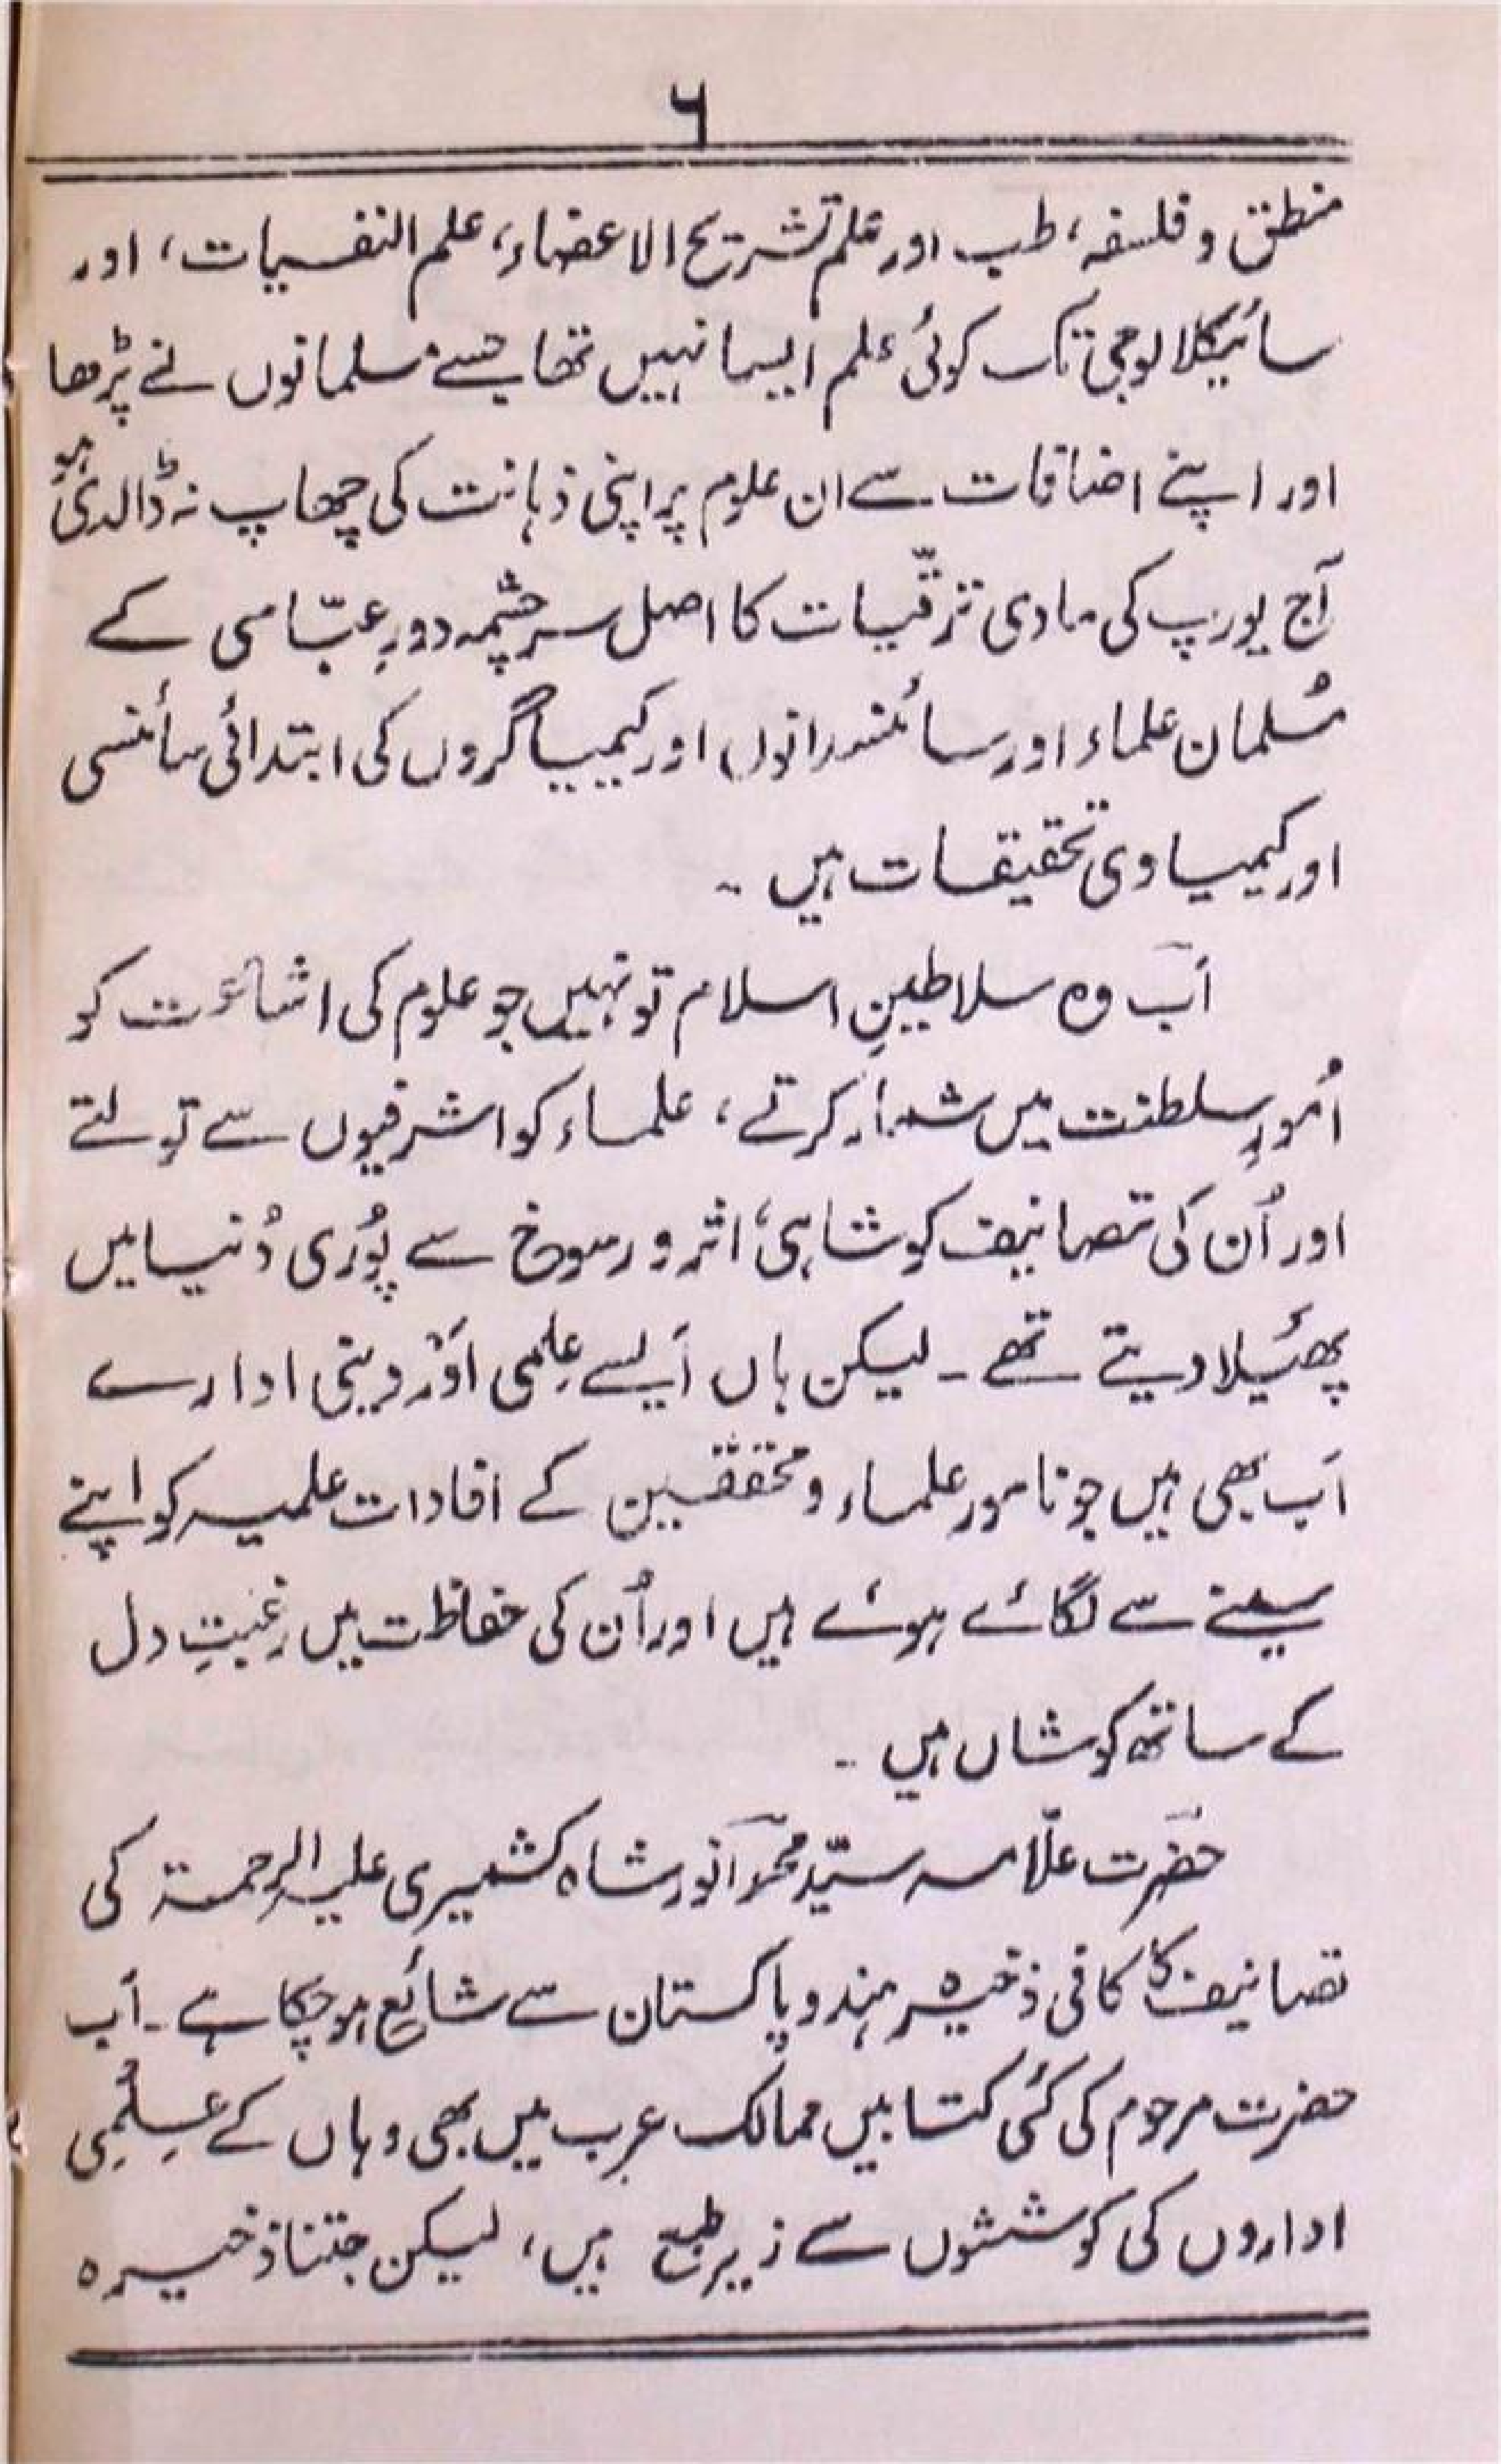 ۶
منطق و فلسفہ، طب اور علم تشریح الاعضاء، علم النفسیات، اور
سائیکلالوجی تک کوئی علم ایسا نہیں تھا جسے مسلمانوں نے پڑھا
اور اپنے اضافات سے ان علوم پر اپنی ذہانت کی چھاپ نہ ڈالدی ہو
آج یورپ کی مادی ترقّیات کا اصل سرچشمہ دورِ عبّاسی کے
مُسلمان علماء اور سائنسدانوں اور کیمیاگروں کی ابتدائی سائنسی
اور کیمیاوی تحقیقات ہیں ۔
اَب وہ سلاطینِ اسلام تو نہیں جو علوم کی اشاعت کو
اُمورِ سلطنت میں شمار کرتے، علماء کو اشرفیوں سے تولتے
اور اُن کی تصانیف کو شاہی اثر و رسوخ سے پُوری دُنیا میں
پھَیلا دیتے تھے ۔ لیکن ہاں اَیسے عِلمی اَور دینی ادارے
اَب بھی ہیں جو نامور علماء و محققین کے افادات علمیہ کو اپنے
سینے سے لگائے ہوئے ہیں اور اُن کی حفاظت میں رغبتِ دل
کے ساتھ کوشاں ہیں ۔
حضرت علّامہ سیّد محمد انور شاہ کشمیری علیہ الرحمۃ کی
تصانیف کا کافی ذخیرہ ہند و پاکستان سے شائع ہو چکا ہے ۔ اَب
حضرت مرحوم کی کئی کتابیں ممالک عرب میں بھی وہاں کے عِلمی
اداروں کی کوششوں سے زیر طبع ہیں، لیکن جتنا ذخیرہ